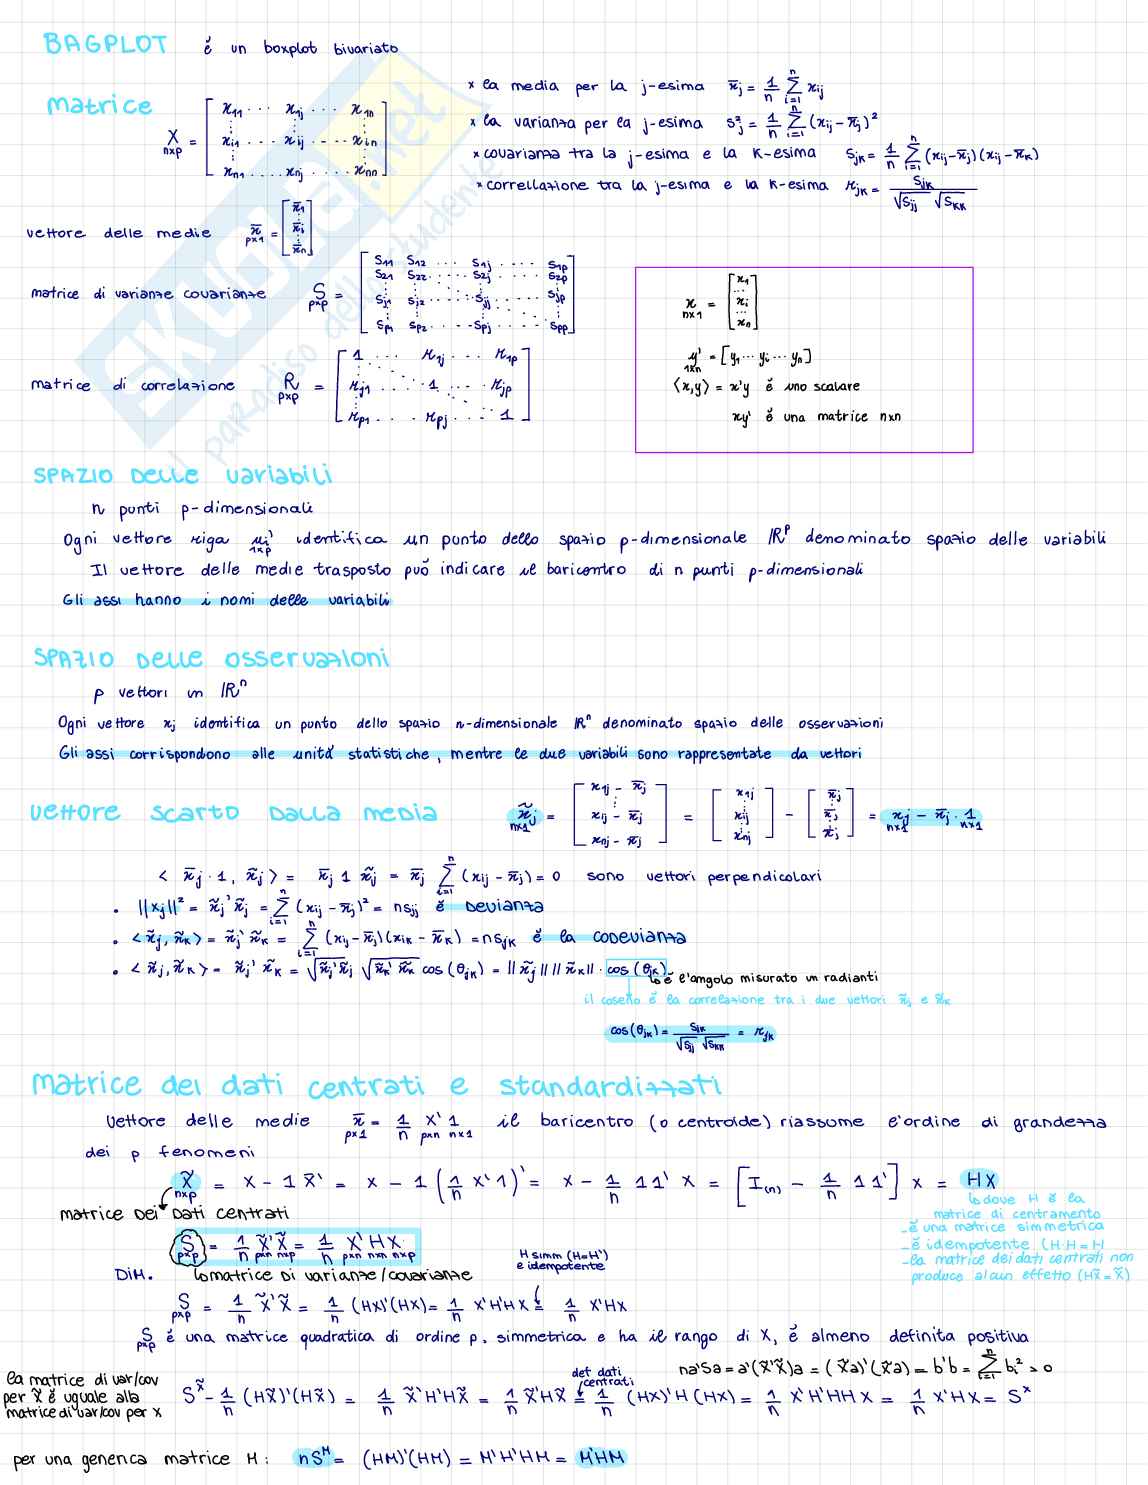 BAGPLOT è un boxplot bivariato
Matrice
X nxp = [ x11 ... x1j ... x1n ; xi1 ... xij ... xin ; xn1 ... xnj ... xnn ]
* la media per la j-esima x̄j = 1/n Σ(i=1, n) xij
* la varianza per la j-esima s²j = 1/n Σ(i=1, n) (xij - x̄j)²
* covarianza tra la j-esima e la k-esima Sjk = 1/n Σ(i=1, n) (xij - x̄j)(xij - x̄k)
* correllazione tra la j-esima e la k-esima rjk = Sjk / √Sjj √Skk
vettore delle medie x̄ px1 = [ x̄1 ; x̄i ; x̄n ]
matrice di varianze covarianze S pxp = [ S11 S12 ... S1j ... S1p ; S21 S22 ... S2j ... S2p ; Sj1 Sj2 ... Sjj ... Sjp ; Sp1 Sp2 ... Spj ... Spp ]
matrice di correlazione R pxp = [ 1 ... r1j ... r1p ; rj1 ... 1 ... rjp ; rp1 ... rpj ... 1 ]
x nx1 = [ x1 ... xi ... xn ]
y' 1xn = [y1 ... yi ... yn]
⟨x,y⟩ = x'y è uno scalare
xy' è una matrice nxn
SPAZIO DELLE VARIABILI
n punti p-dimensionali
Ogni vettore riga ui' 1xp identifica un punto dello spazio p-dimensionale ℝᵖ denominato spazio delle variabili
Il vettore delle medie trasposto può indicare il baricentro di n punti p-dimensionali
Gli assi hanno i nomi delle variabili
SPAZIO DELLE OSSERVAZIONI
p vettori in ℝⁿ
Ogni vettore xj identifica un punto dello spazio n-dimensionale ℝⁿ denominato spazio delle osservazioni
Gli assi corrispondono alle unità statistiche, mentre le due variabili sono rappresentate da vettori
VETTORE SCARTO DALLA MEDIA x̃j nx1 = [ x1j - x̄j ; xij - x̄j ; xnj - x̄j ] = [ x1j ; xij ; xnj ] - [ x̄j ; x̄j ; x̄j ] = xj nx1 - x̄j · 1 nx1
< x̄j · 1, x̃j > = x̄j 1 x̃j = x̄j Σ(i=1, n) (xij - x̄j) = 0 sono vettori perpendicolari
• ||xj||² = x̃j' x̃j = Σ(i=1, n) (xij - x̄j)² = nsjj è DEVIANZA
• < x̃j, x̃k > = x̃j' x̃k = Σ(i=1, n) (xij - x̄j)(xik - x̄k) = nsjk è la CODEVIANZA
• < x̃j, x̃k > = x̃j' x̃k = √x̃j' x̃j √x̃k' x̃k cos(θjk) = ||x̃j|| || x̃k|| · cos(θjk)
↳ è l'angolo misurato in radianti
il coseno è la correlazione tra i due vettori x̃j e x̃k
cos(θjk) = Sjk / √Sjj √Skk = rjk
Matrice dei dati centrati e standardizzati
Vettore delle medie x̄ px1 = 1/n X' pxn 1 nx1 il baricentro (o centroide) riassume l'ordine di grandezza
dei p fenomeni
X̃ nxp = X - 1 x̄' = X - 1 (1/n X'1)' = X - 1/n 11' X = [I(n) - 1/n 11'] X = HX
matrice dei dati centrati
↳ dove H è la
matrice di centramento
- è una matrice simmetrica
- è idempotente (H·H=H
- la matrice dei dati centrati non
produce alcun effetto (HX̃ = X̃)
S pxp = 1/n X̃' pxn X̃ nxp = 1/n X' pxn H nxn X nxp
DIM. ↳ matrice di varianze/covarianze
H simm (H=H')
e idempotente
S pxp = 1/n X̃'X̃ = 1/n (HX)'(HX) = 1/n X'H'HX = 1/n X'HX
S pxp è una matrice quadratica di ordine p, simmetrica e ha il rango di X, è almeno definita positiva
na'Sa = a'(X̃'X̃)a = (X̃a)'(X̃a) = b'b = Σ(i=1, n) bi² > 0
la matrice di var/cov
per X̃ è uguale alla
matrice di var/cov per X
def dati
centrati
S^X̃ - 1/n (HX̃)'(HX̃) = 1/n X̃'H'HX̃ = 1/n X̃'HX̃ = 1/n (HX)'H(HX) = 1/n X'H'HHX = 1/n X'HX = S^X
per una generica matrice M: nS^M = (HM)'(HM) = M'H'HM = M'HM
SKUOLA.net
il paradiso dello studente